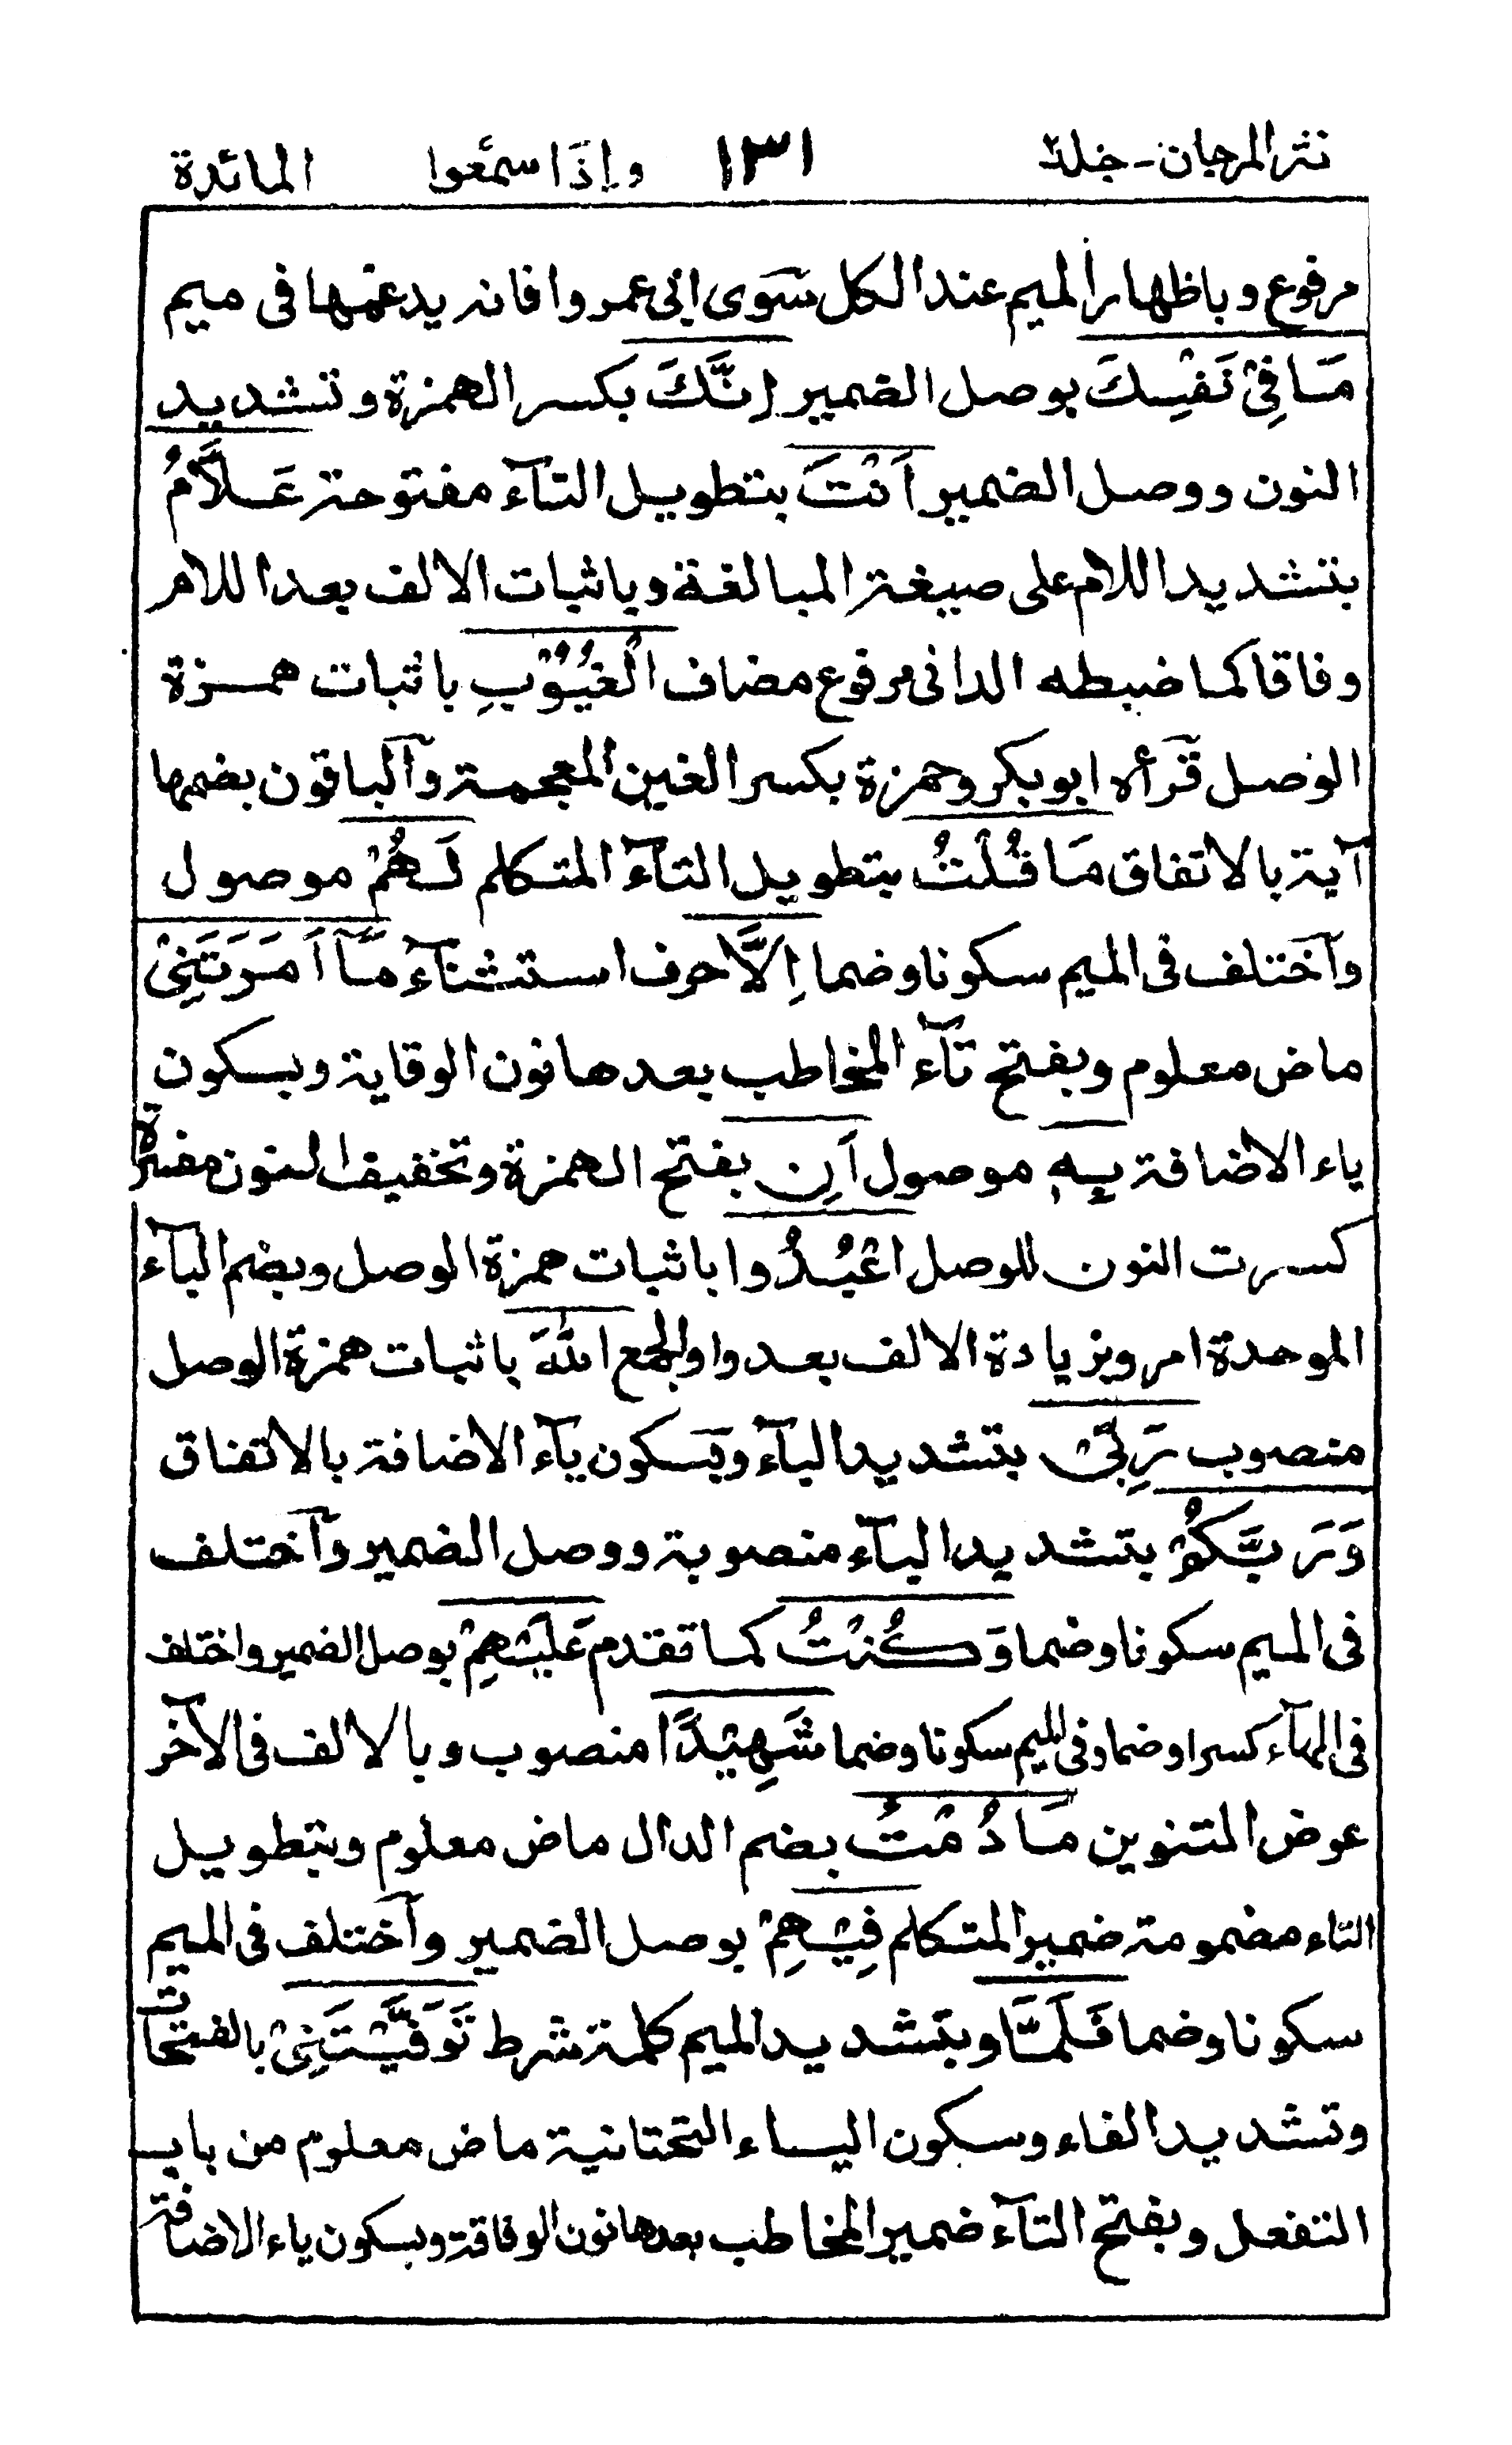 نثر المرجان - جلد٢ ١٣١ واذا سمعوا المائدة
مرفوع وباظهار الميم عند الكل سَوى ابى عمروا فانه يدغمها فى ميم
مَا فِىْ نَفْسِكَ بوصل الضمير اِنَّكَ بكسر الهمزة وتشديد
النون ووصل الضمير اَنْتَ بتطويل التآء مفتوحة عَلَّامُ
بتشديد اللام على صيغة المبالغة وباثبات الالف بعد اللام
وفاقا كما ضبطه الدانى مرفوع مضاف الْغُيُوْبِ باثبات همزة
الوصل قرأه ابوبكر وحمزة بكسر الغين المعجمة وآلباقون بضمها
آية بالاتفاق مَا قُلْتُ بتطويل التآء المتكلم لَهُمْ موصول
وآختلف فى الميم سكونا وضما اِلَّا حرف استثنآء مَآ اَمَرْتَنِىْ
ماض معلوم وبفتح تآء المخاطب بعدها نون الوقاية وبسكون
ياء الاضافة بِهٖ موصول اَنِ بفتح الهمزة وتخفيف النون مفسرة
كسرت النون للوصل اعْبُدُوا باثبات همزة الوصل وبضم البآء
الموحدة امر وبزيادة الالف بعد واو الجمع اللّٰهَ باثبات همزة الوصل
منصوب رَبِّىْ بتشديد البآء وبسكون يآء الاضافة بالاتفاق
وَرَبَّكُمْ بتشديد البآء منصوبة ووصل الضمير وآختلف
فى الميم سكونا وضما وَكُنْتُ كما تقدم عَلَيْهِمْ بوصل الضمير واختلف
فى الهآء كسرا وضما وفى الميم سكونا وضما شَهِيْدًا منصوب وبالالف فى الآخر
عوض التنوين مَا دُمْتُ بضم الدال ماض معلوم وبتطويل
التاء مضمومة ضمير المتكلم فِيْهِمْ بوصل الضمير وآختلف فى الميم
سكونا وضما فَلَمَّا وبتشديد الميم كلمة شرط تَوَفَّيْتَنِىْ بالفتحات
وتشديد الفاء وسكون الياء التحتانية ماض معلوم من باب
التفعل وبفتح التآء ضمير المخاطب بعدها نون الوقاقة وبسكون ياء الاضافة